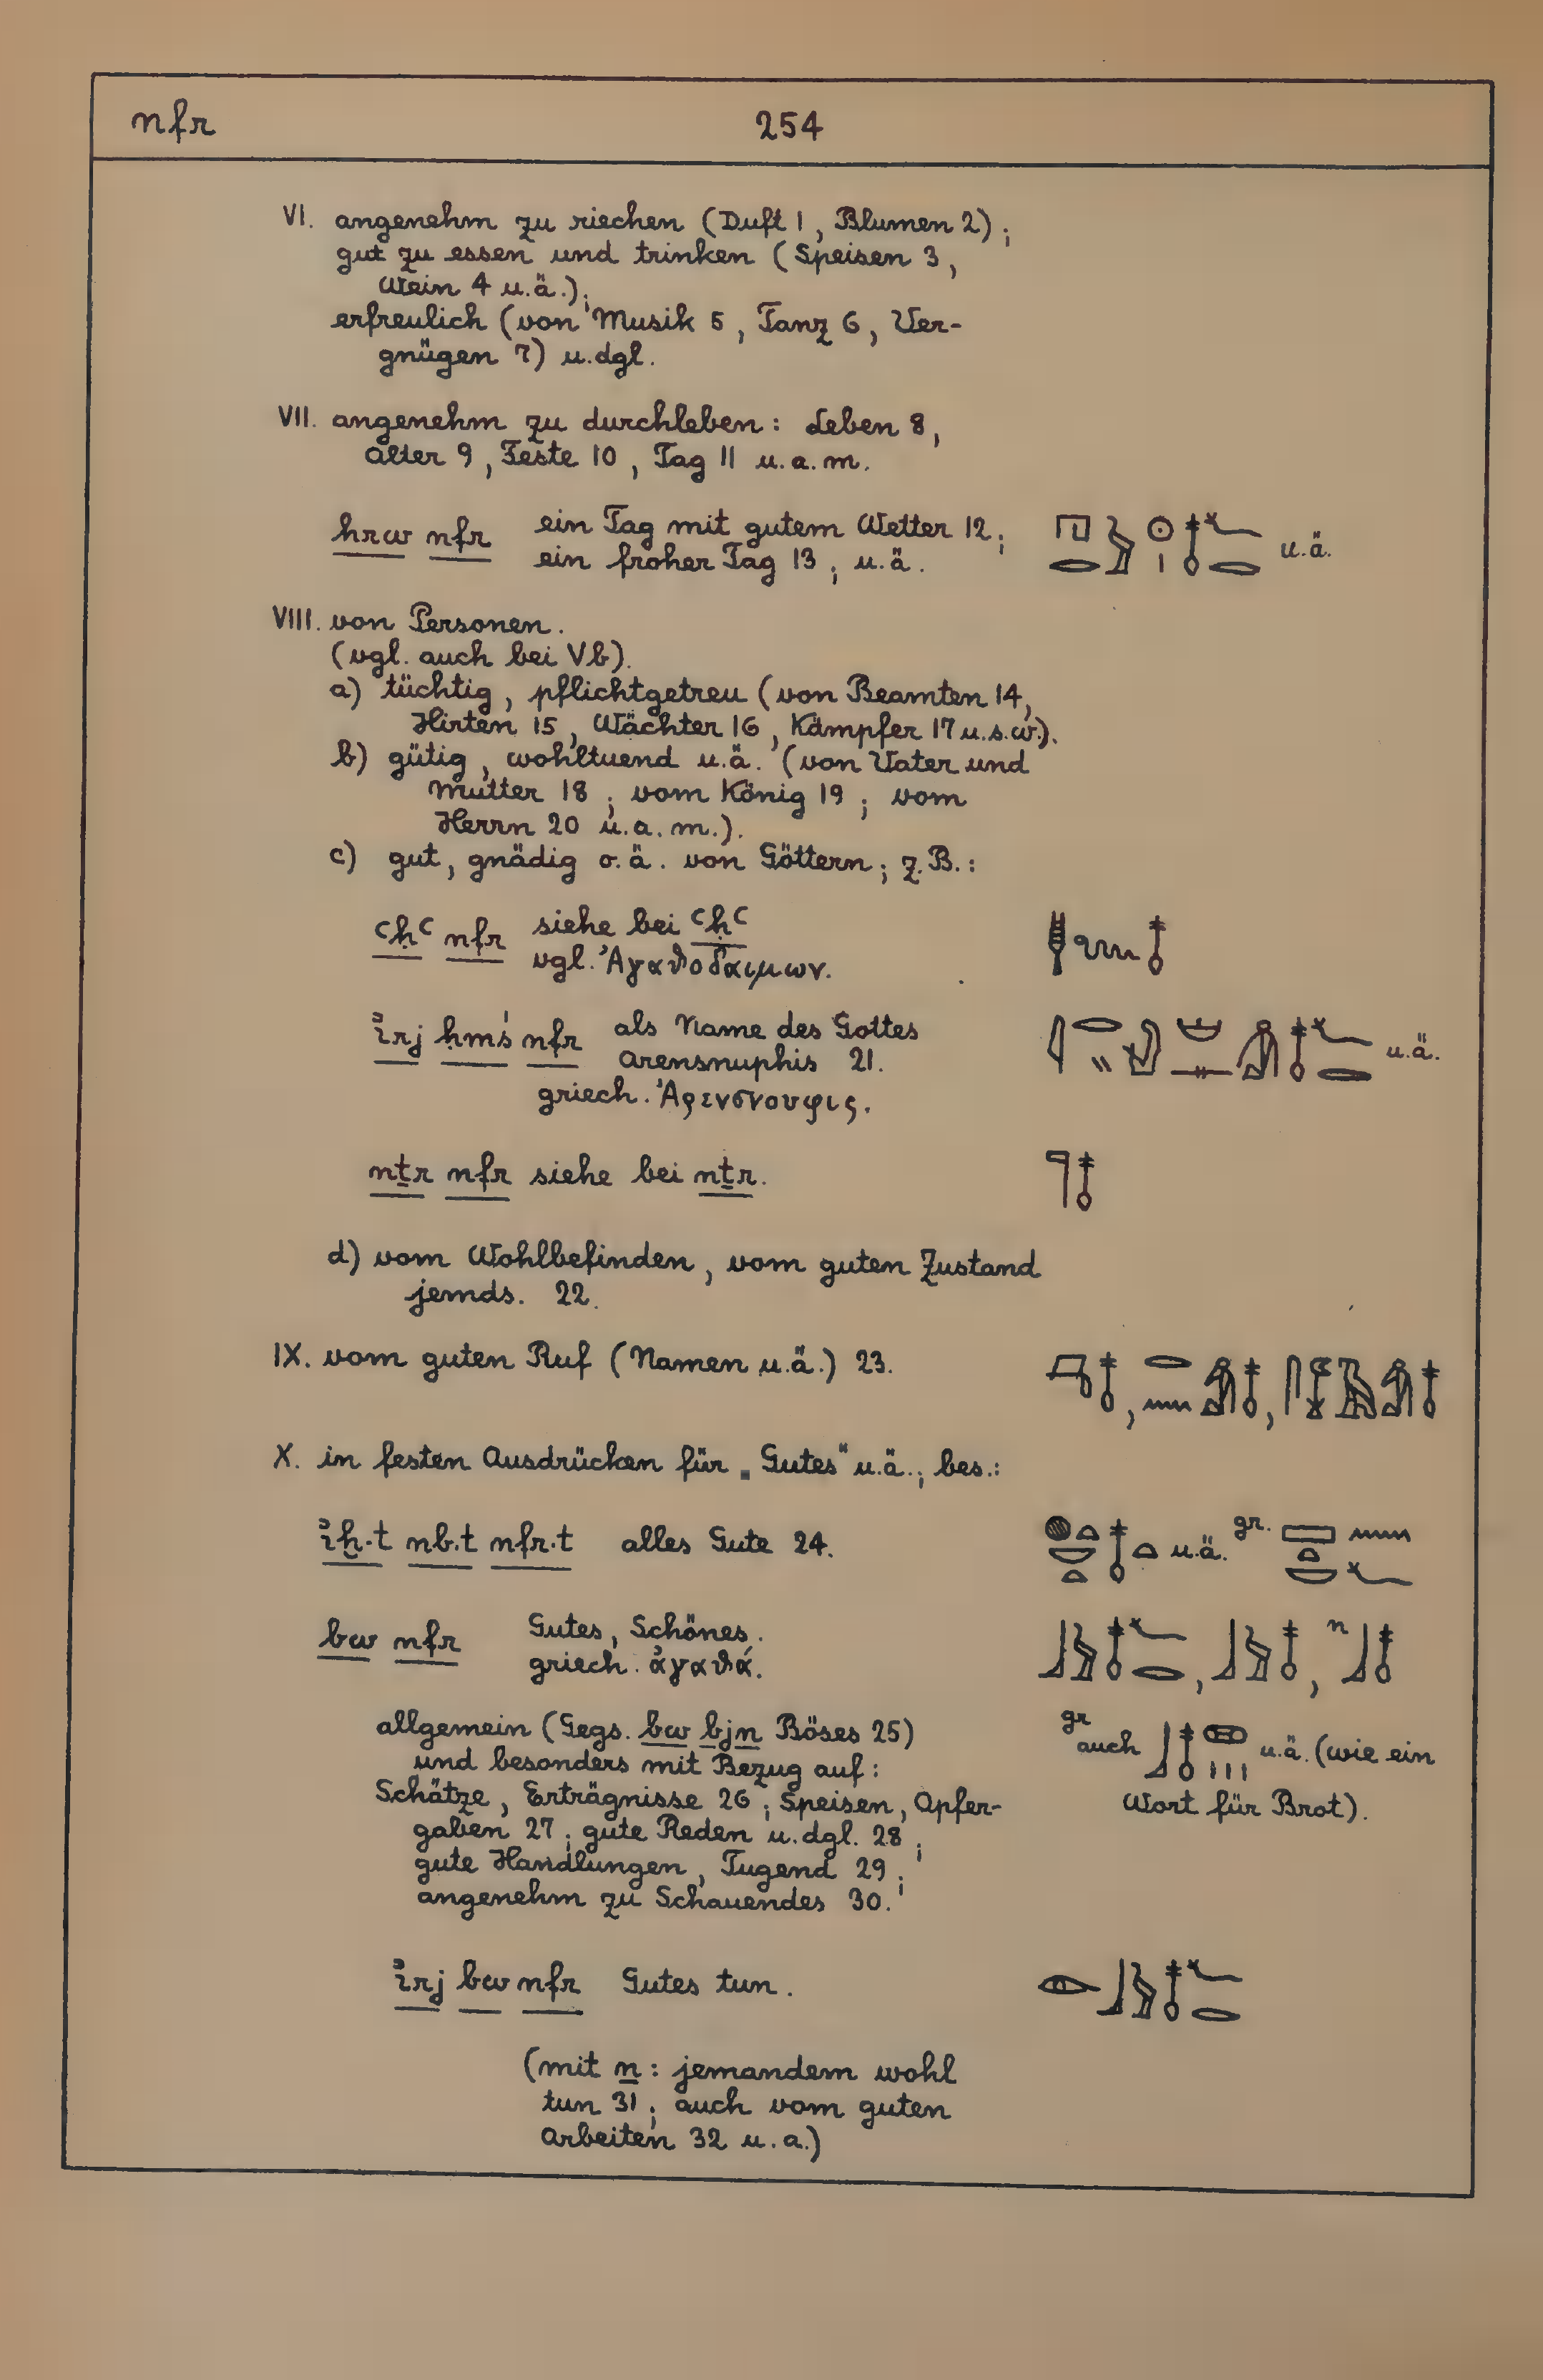 nfr
254
VI. angenehm zu riechen (Duft 1, Blumen 2);
gut zu essen und trinken (Speisen 3,
Wein 4 u.ä.);
erfreulich (von Musik 5, Tanz 6, Ver-
gnügen 7) u.dgl.
VII. angenehm zu durchleben: Leben 8,
Alter 9, Feste 10, Tag 11 u.a.m.
hrw nfr ein Tag mit gutem Wetter 12; u.ä.
ein froher Tag 13; u.ä.
VIII. von Personen.
(vgl. auch bei Vb).
a) tüchtig, pflichtgetreu (von Beamten 14,
Hirten 15, Wächter 16, Kämpfer 17 u.s.w.).
b) gütig, wohltuend u.ä. (von Vater und
Mutter 18; vom König 19; vom
Herrn 20 u.a.m.).
c) gut, gnädig o.ä. von Göttern; z.B.:
ꜥḥꜥ nfr siehe bei ꜥḥꜥ
vgl. Ἀγαθοδαιμων.
ỉrj ḥmś nfr als Name des Gottes u.ä.
Arensnuphis 21.
griech. Ἀρενσνουφις.
nṯr nfr siehe bei nṯr.
d) vom Wohlbefinden, vom guten Zustand
jemds. 22.
IX. vom guten Ruf (Namen u.ä.) 23.
X. in festen Ausdrücken für „Gutes“ u.ä.; bes.:
ỉḫ.t nb.t nfr.t alles Gute 24. u.ä. gr.
bw nfr Gutes, Schönes. n
griech. ἀγαθά.
allgemein (Gegs. bw bjn Böses 25) gr.
auch u.ä. (wie ein
und besonders mit Bezug auf:
Schätze, Erträgnisse 26; Speisen, Opfer- Wort für Brot).
gaben 27; gute Reden u.dgl. 28;
gute Handlungen, Tugend 29;
angenehm zu Schauendes 30.
ỉrj bw nfr Gutes tun.
(mit n: jemandem wohl
tun 31; auch vom guten
Arbeiten 32 u.a.)